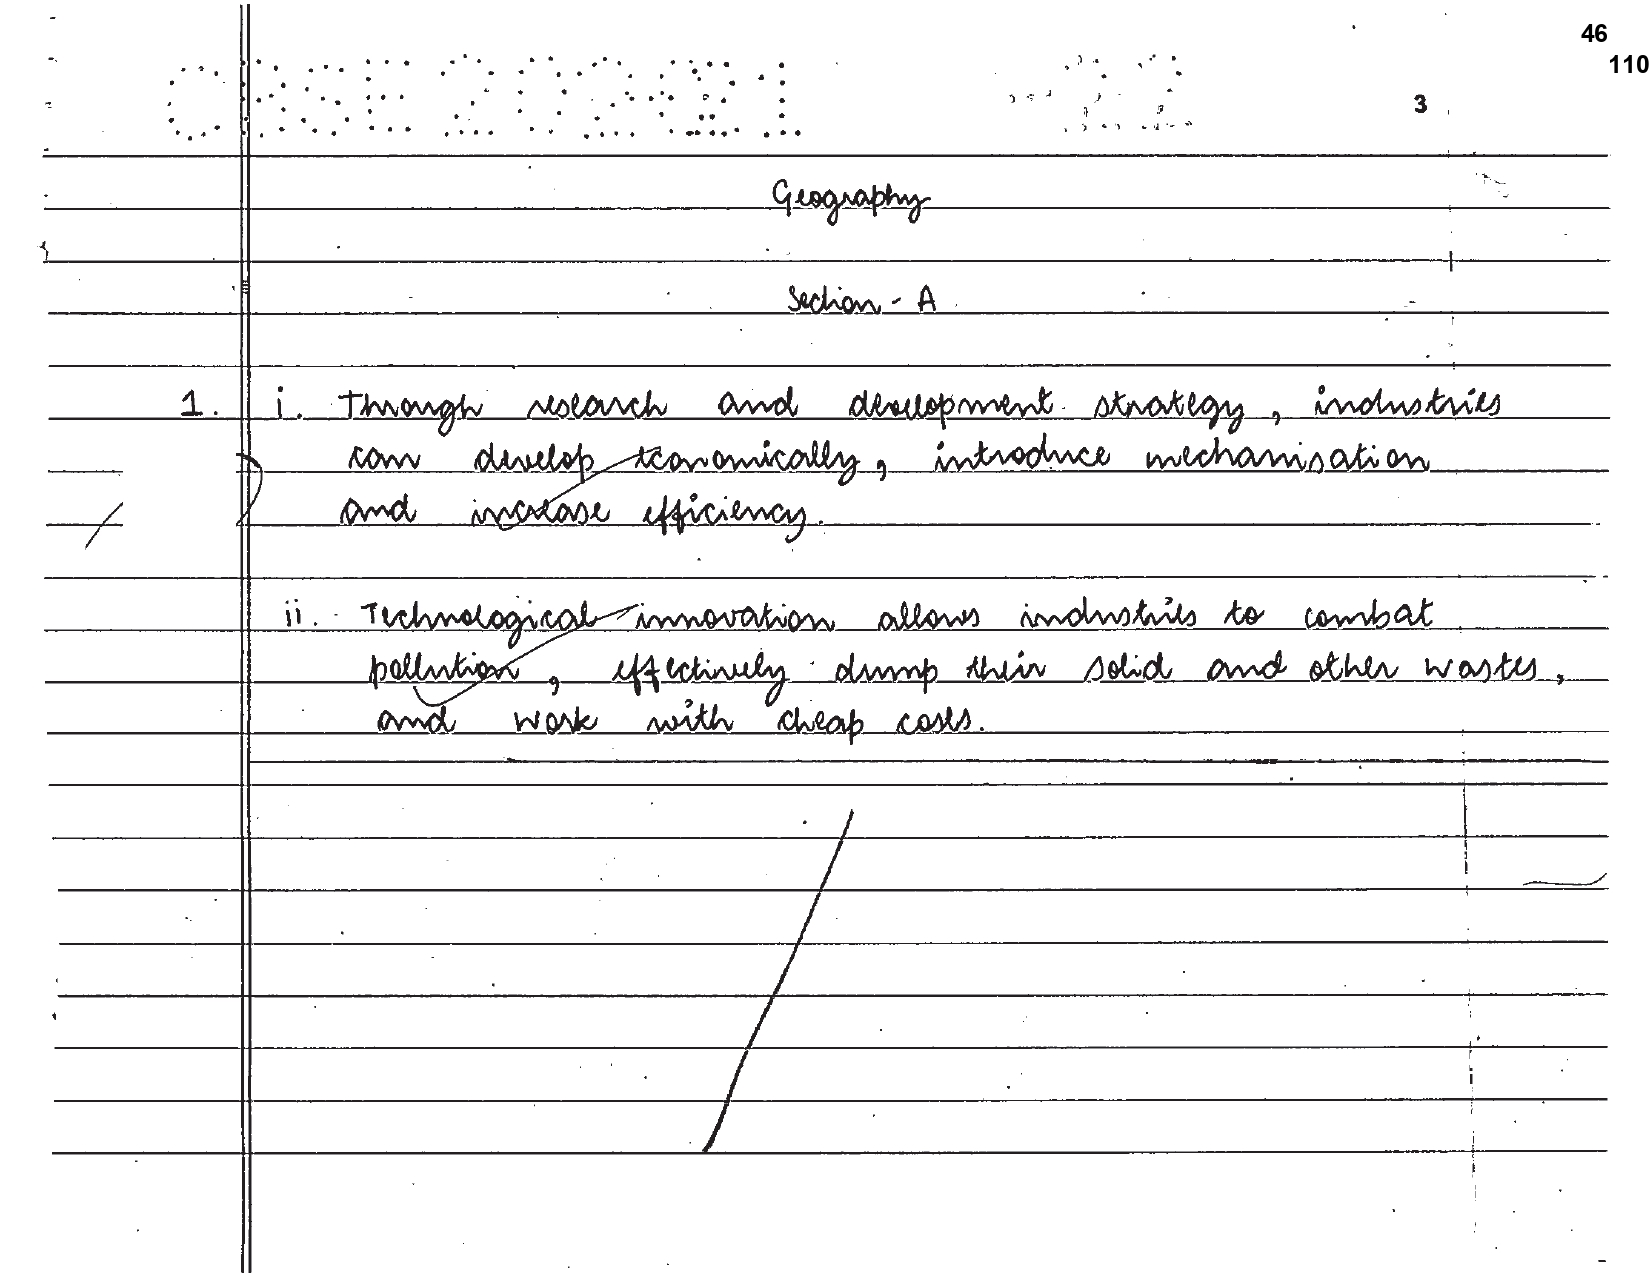 46
110
CBSE 2021 -22
3
Geography
Section - A
1. i. Through research and development strategy, industries
can develop economically, introduce mechanisation
and increase efficiency.
ii. Technological innovation allows industries to combat
pollution, effectively dump their solid and other wastes,
and work with cheap costs.